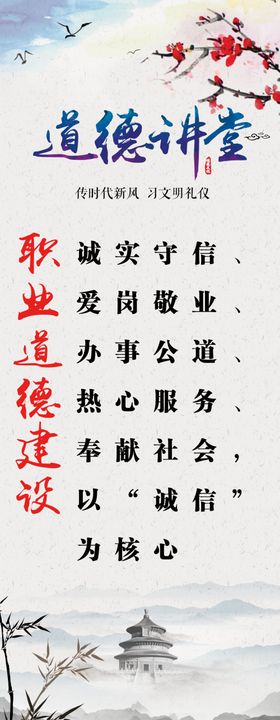 道德讲堂
传时代新风 习文明礼仪
职业道德建设
诚实守信、
爱岗敬业、
办事公道、
热心服务、
奉献社会，
以“诚信”
为核心